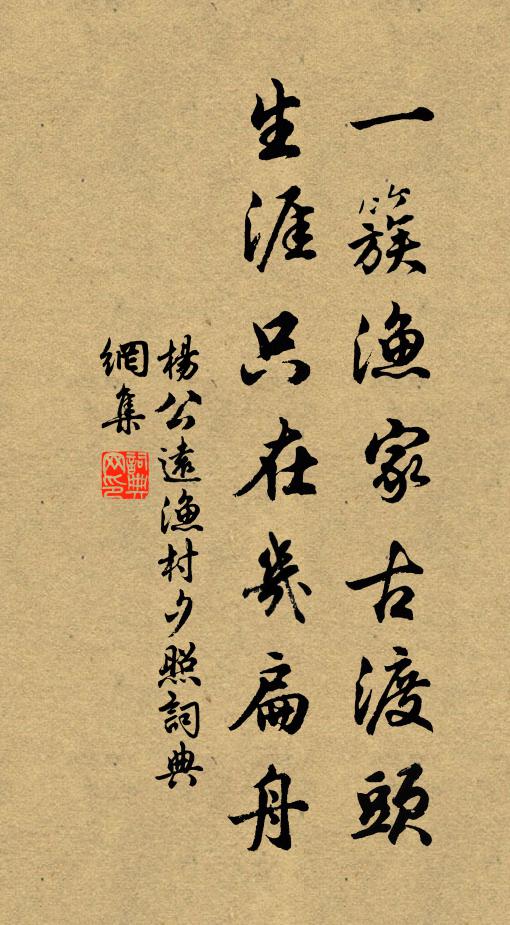 一簇漁家古渡頭
生涯只在幾扁舟
楊公遠漁村夕照詞典
網集
詞典網印